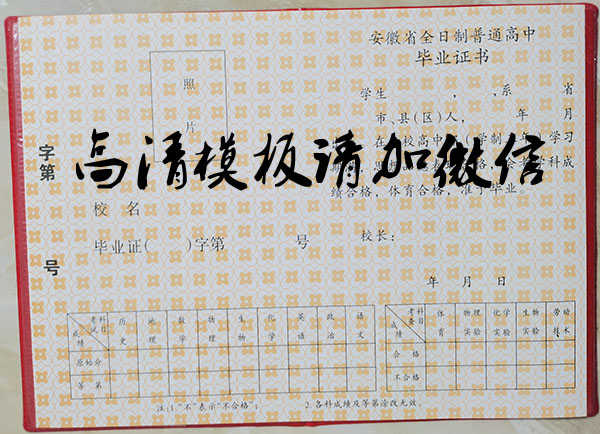 安徽省全日制普通高中
毕业证书
照
片
学生 , ,系 省
市、县(区)人, 年 月
在 校高中 (学制 年)学习
高清模板请加微信
绩合格,体育合格,准于毕业。
字第
号
校 名
毕业证( )字第 号
校长:
年 月 日
考试 科目 成绩 历史 地理 数学 物理 生物 化学 英语 政治 语文
原始分
等 第
考查 科目 成绩 体育 物理实验 化学实验 生物实验 劳动技术
合 格
不合格
注:1“不”表示“不合格”; 2.各科成绩及等第涂改无效。